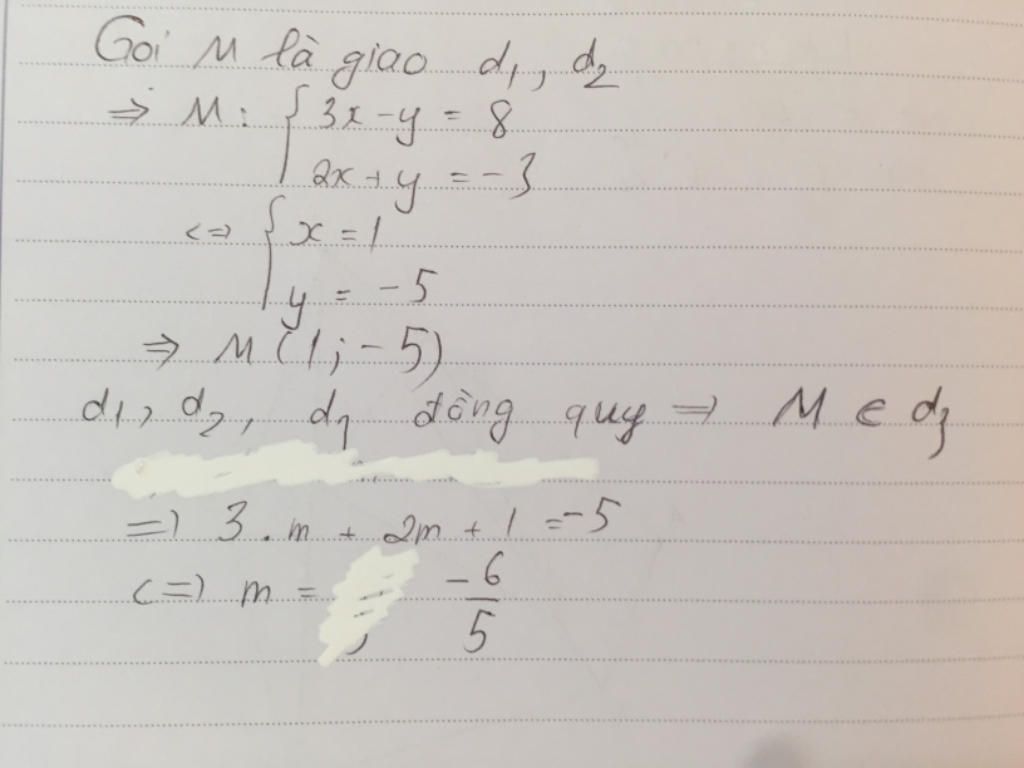 Gọi M là giao d1, d2
=> M: { 3x - y = 8
2x + y = -3
<=> { x = 1
y = -5
=> M (1; -5)
d1, d2, d3 đồng quy => M ∈ d3
=> 3 . m + 2m + 1 = -5
<=> m = -6/5